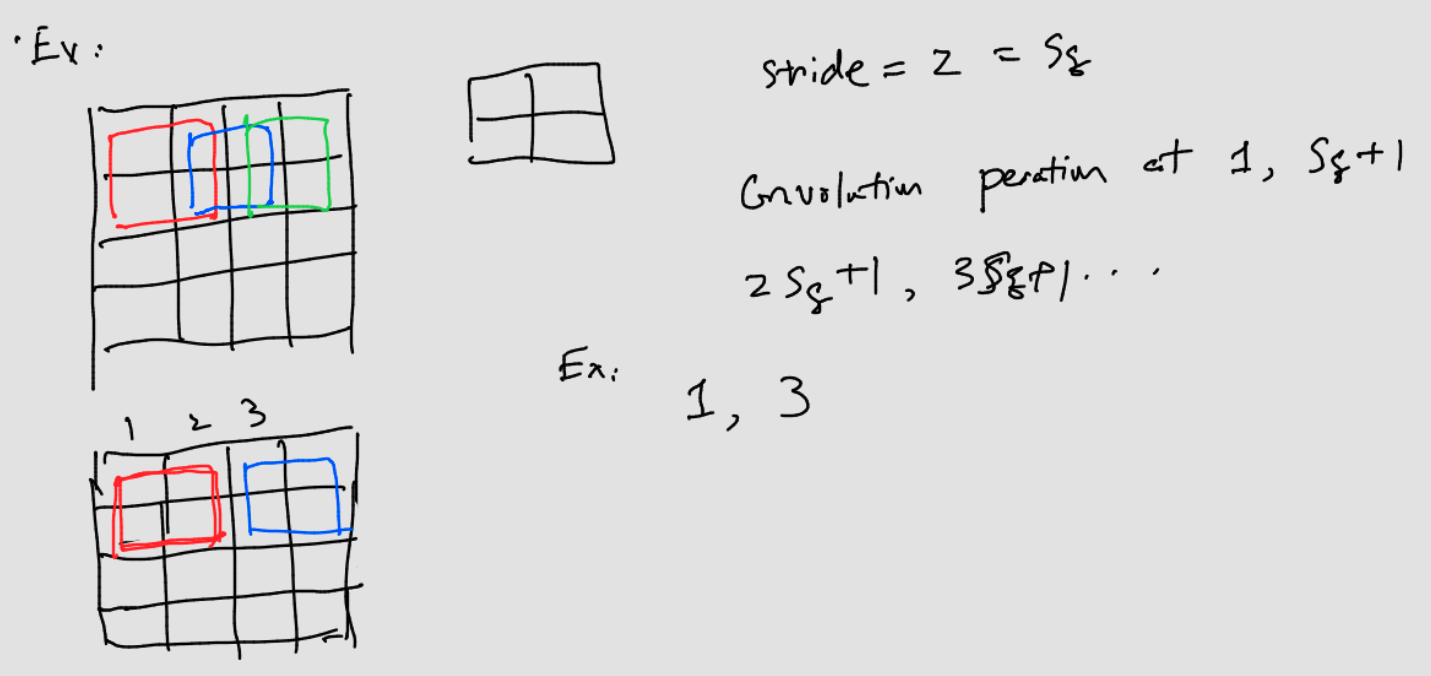 · Ex:
stride = 2 = Sq
Convolution peration at 1, Sq+1
2Sq+1, 3Sq+1 . . .
Ex:
1, 3
1 2 3